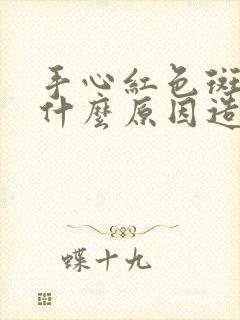 手心紅色斑
什麼原因造
蝶十九